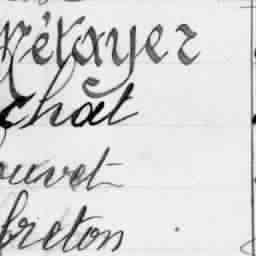 Métayer
chat
ouvet
breton